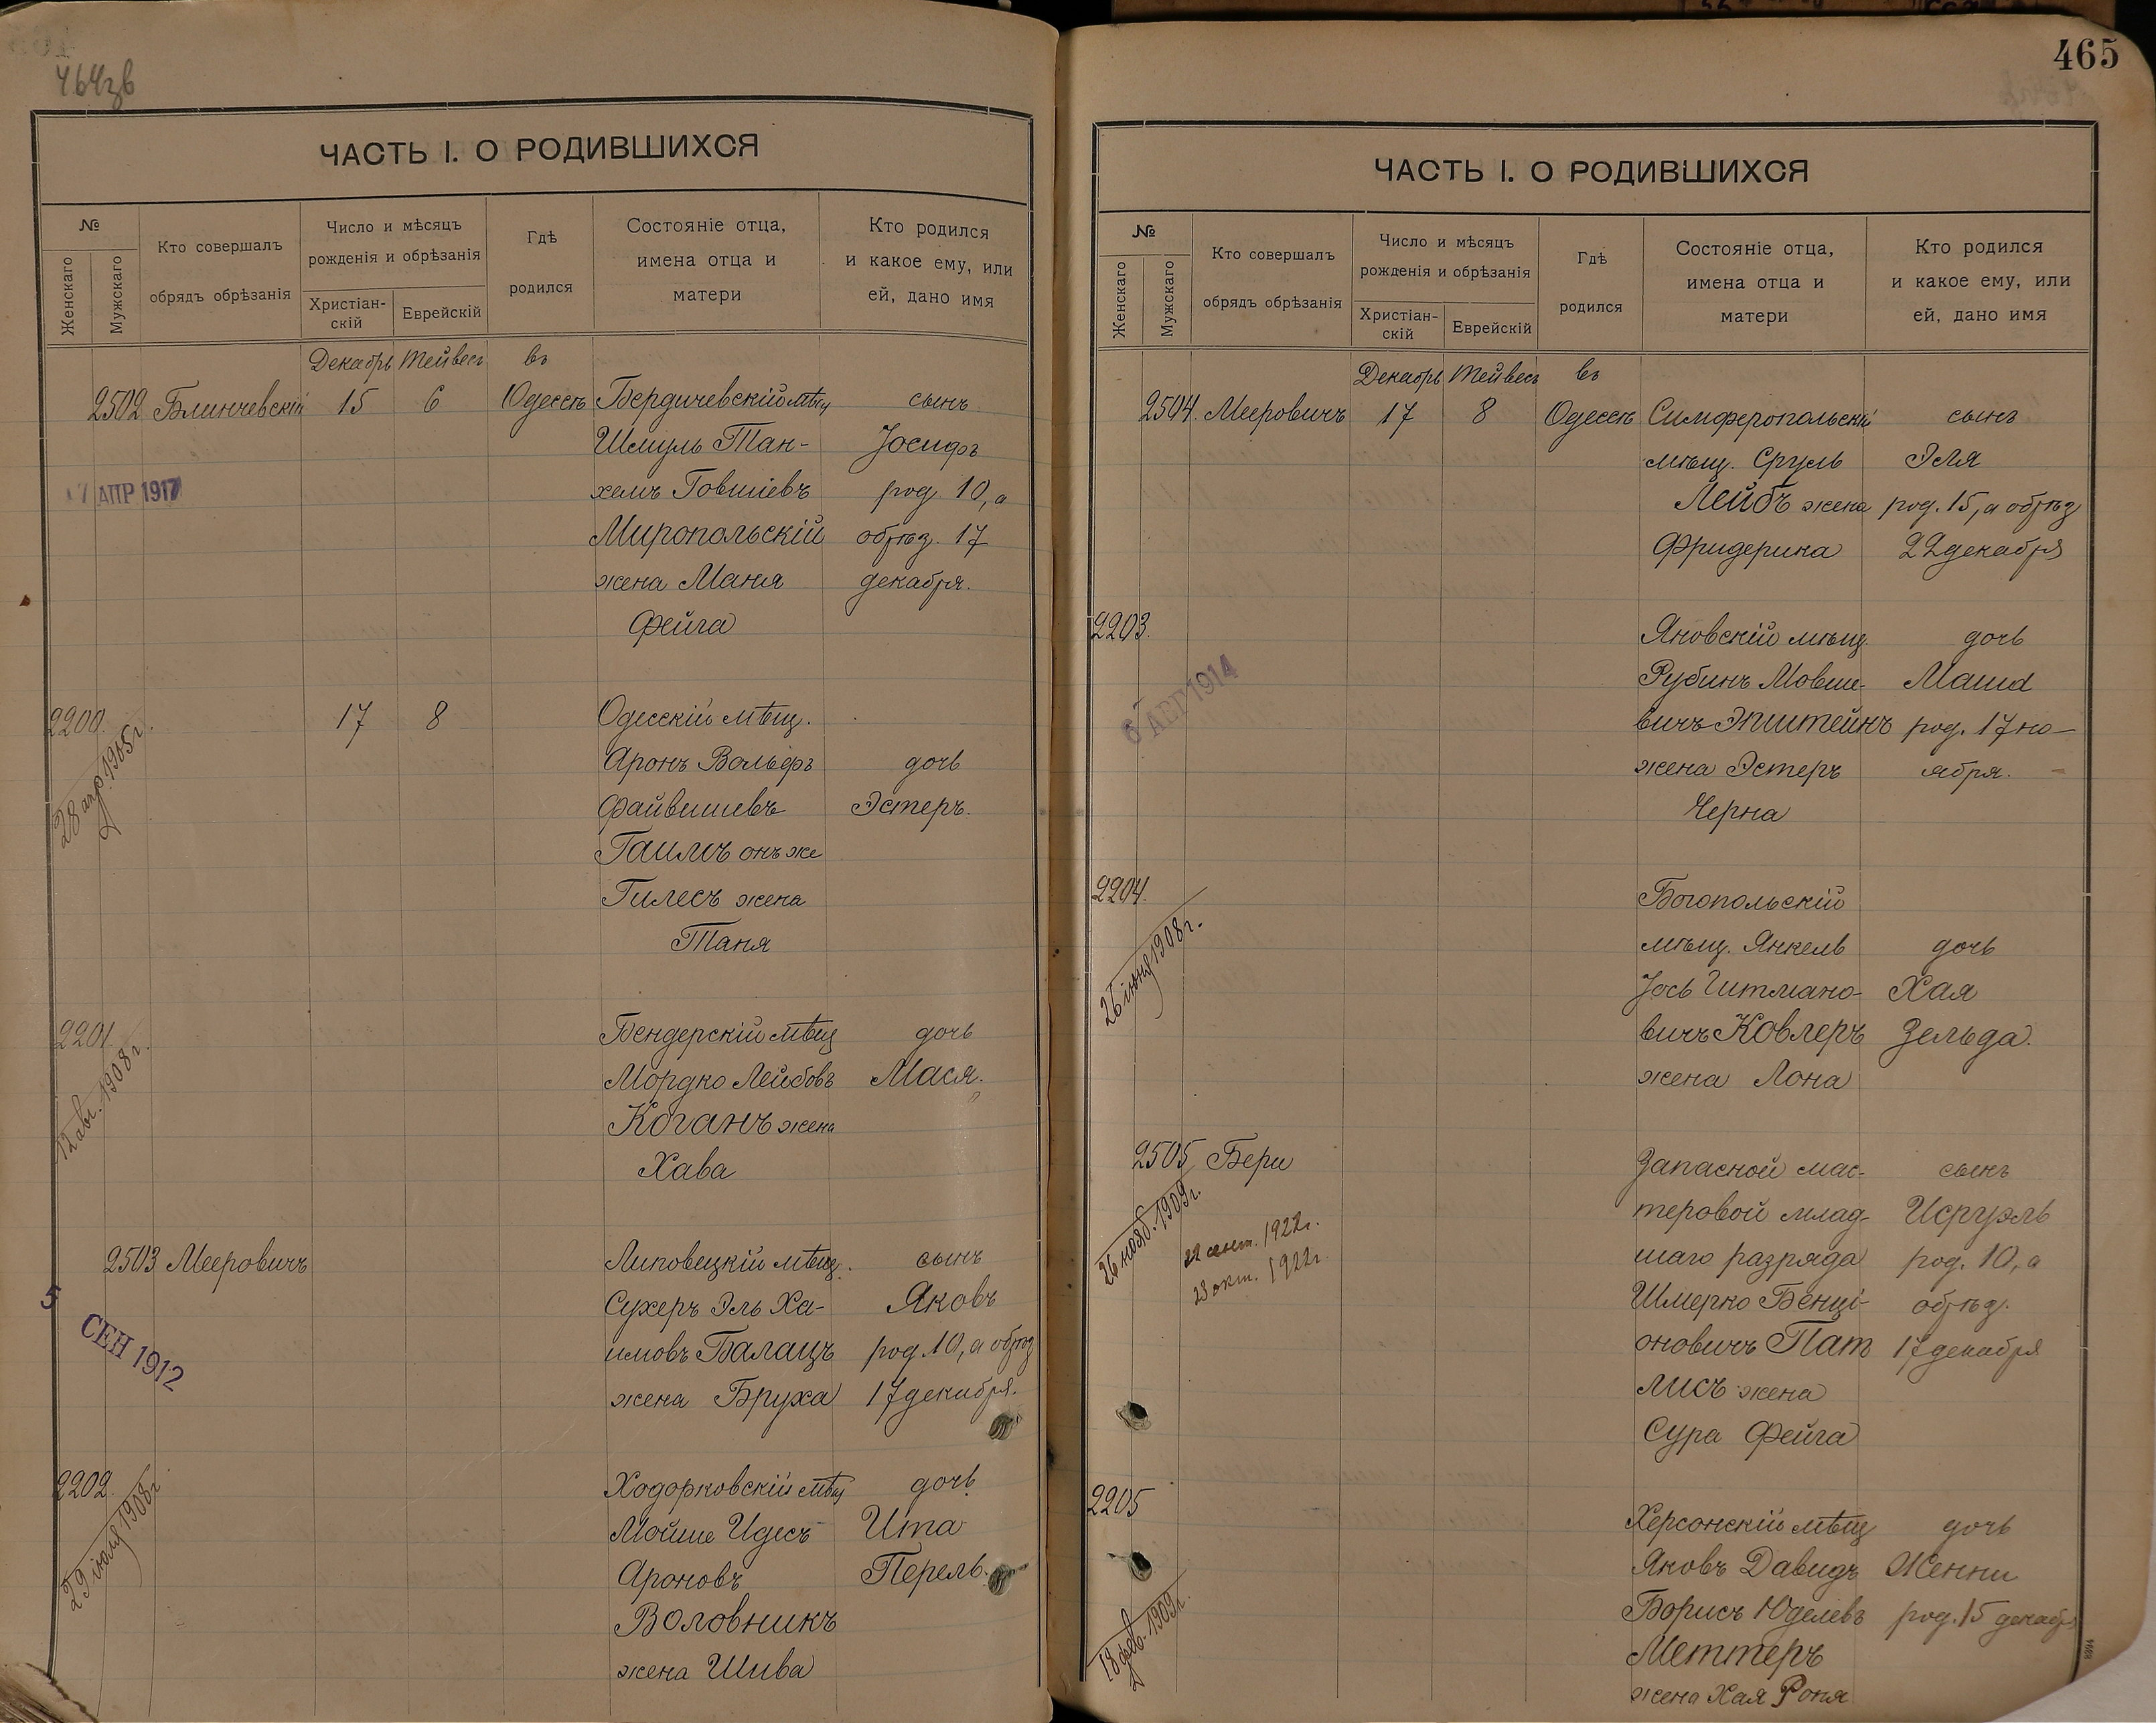 464зв
ЧАСТЬ I. О РОДИВШИХСЯ
№
Женскаго
Мужскаго
Кто совершалъ
обрядъ обрѣзанія
Число и мѣсяцъ
рожденія и обрѣзанія
Христіан-
скій
Еврейскій
Гдѣ
родился
Состояніе отца,
имена отца и
матери
Кто родился
и какое ему, или
ей, дано имя
Декабрь Тейвесъ въ
2502 Блинчевскій 15 6 Одессѣ Бердичевскій мѣщ сынъ
Шмуль Тан- Іосифъ
хемъ Говшіевъ род. 10, а
17 АПР 1917
Миропольскій обрѣз. 17
жена Маня декабря.
Фейга
2200. 17 8 Одесскій мѣщ.
28 апр. 1905 г.
Аронъ Вольфъ дочь
Файвишевъ Эстеръ.
Гаимъ онъ же
Гилесъ жена
Таня
2201. Бендерскій мѣщ дочь
12 авг. 1908 г.
Мордко Лейбовъ Мася.
Коганъ жена
Хава
2503 Мееровичъ Липовецкій мѣщ. сынъ
5 СЕН 1912
Сухеръ Эль Ха- Яковъ
имовъ Балацъ род. 10, а обрѣз
жена Бруха 17 декабря.
2202. Ходорковскій мѣщ дочь
29 іюля 1908 г.
Мойше Идесъ Ита
Ароновъ Перель.
Воловникъ
жена Шива
465
ЧАСТЬ I. О РОДИВШИХСЯ
№
Женскаго
Мужскаго
Кто совершалъ
обрядъ обрѣзанія
Число и мѣсяцъ
рожденія и обрѣзанія
Христіан-
скій
Еврейскій
Гдѣ
родился
Состояніе отца,
имена отца и
матери
Кто родился
и какое ему, или
ей, дано имя
Декабрь Тейвесъ въ
2504. Мееровичъ 17 8 Одессѣ Симферопольскій сынъ
мѣщ. Сруль Эля
Лейбъ жена род. 15, а обрѣз
Фридерика 22 декабря
2203. Яновскій мѣщ. дочь
6 АВГ 1914
Рубинъ Мовше- Маша
вичъ Эпштейнъ род. 17 но-
жена Эстеръ ября.
Черна
2204. Богопольскій
26 іюня 1908 г.
мѣщ. Янкель дочь
Іось Гитмано- Хая
вичъ Ковлеръ Зельда.
жена Лона
2505 Бери Запасной мас- сынъ
26 нояб. 1909 г.
22 сент. 1922 г.
23 окт. 1922 г.
теровой млад- Исруэль
шаго разряда род. 10, а
Шмерко Бенці- обрѣз.
оновичъ Пат 17 декабря
лисъ жена
Сура Фейга
2205 Херсонскій мѣщ дочь
18 фев. 1909 г.
Яковъ Давидъ Женни
Борисъ Юделевъ род. 15 декабр
Меттеръ
жена Хая Роня